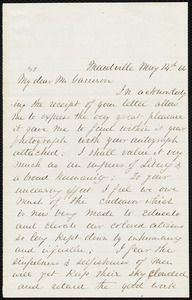 Meadville May 14th 66
My dear Mr Garrison
In acknowledg
ing the receipt of your letter allow
me to express the very great pleasure
it gave me to find within it your
photograph with your autograph
attached. I shall value it very
much as an impress of Liberty &
a broad humanity. To your
unceasing effort I feel we owe
much of the
is now being made to educate
and elevate our colored citizens
so long kept down by inhumanity
and injustice. I fear the
sinfulness & selfishness of men
will yet keep their sky clouded
and retard the good work